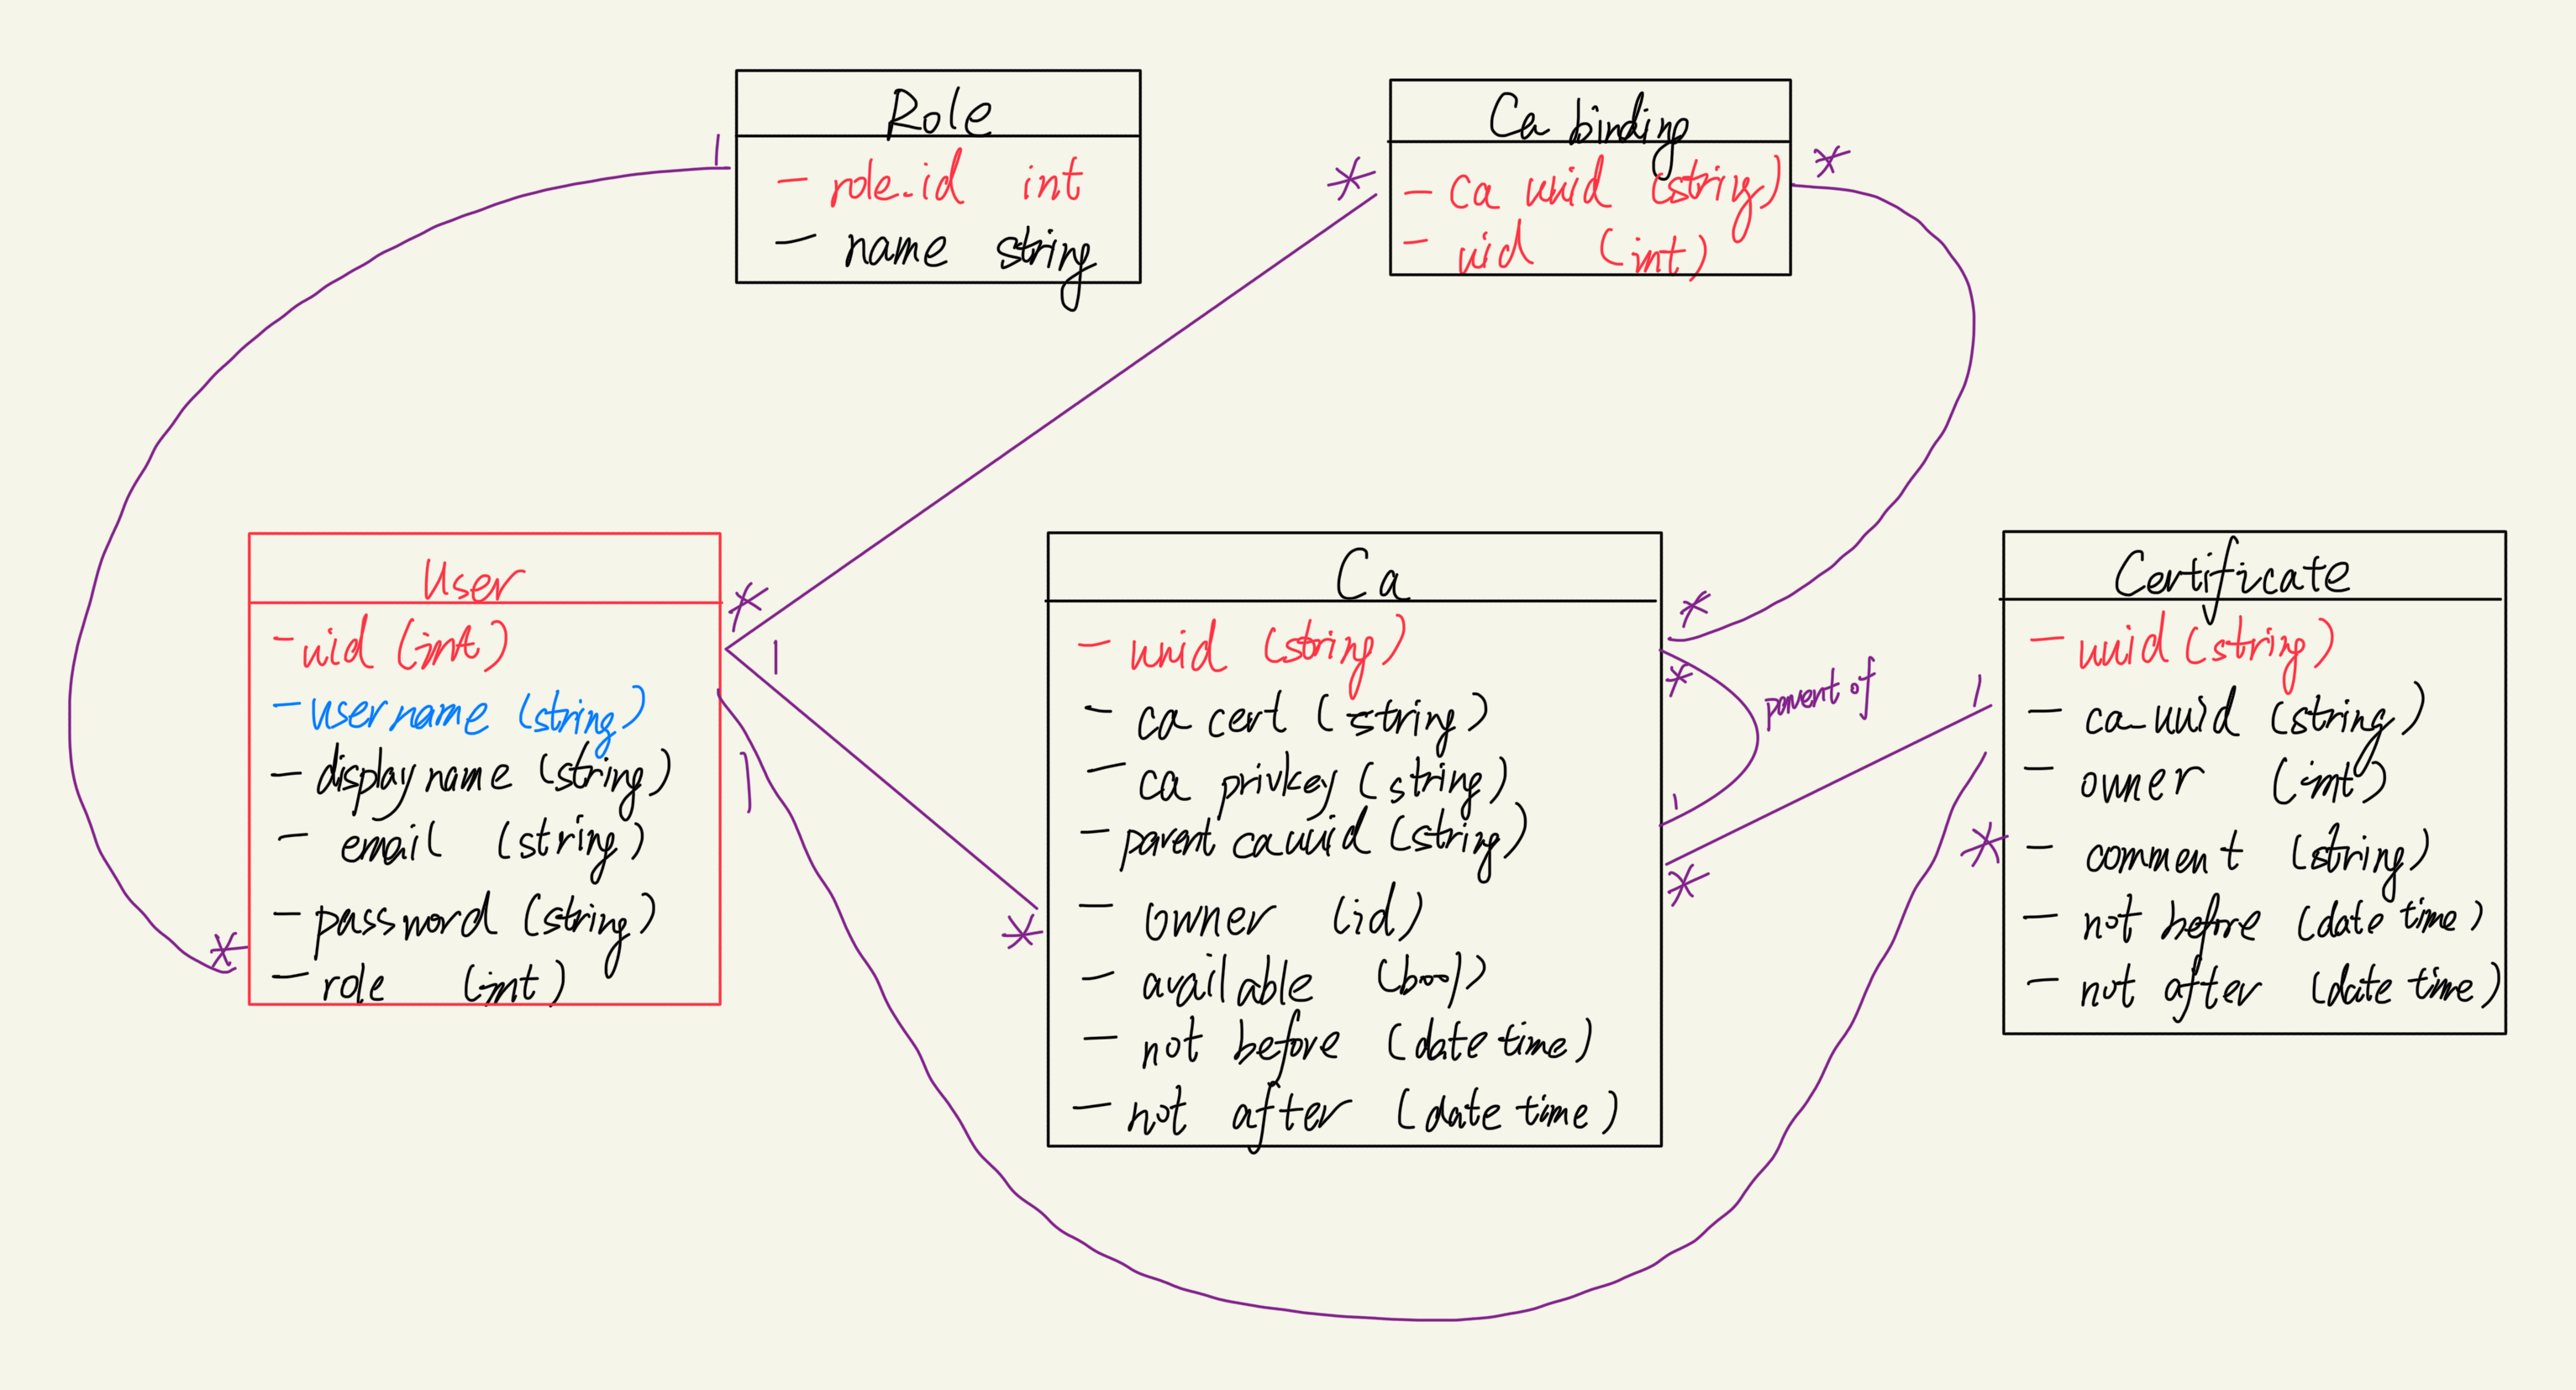 Role
- role_id int
- name string
1
Ca binding
- ca uuid (string)
- uid (int)
*
*
User
- uid (int)
- username (string)
- display name (string)
- email (string)
- password (string)
- role (int)
*
*
1
1
Ca
- uuid (string)
- ca cert (string)
- ca privkey (string)
- parent ca uuid (string)
- owner (id)
- available (bool)
- not before (date time)
- not after (date time)
*
*
*
1
*
parent of
Certificate
- uuid (string)
- ca_uuid (string)
- owner (int)
- comment (string)
- not before (date time)
- not after (date time)
1
*